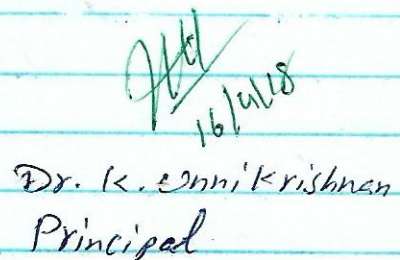 16/4/18
Dr. K. Unnikrishnan
Principal